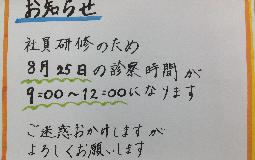 お知らせ
社員研修のため
8月25日の診察時間が
9:00〜12:00になります
ご迷惑おかけしますが
よろしくお願いします